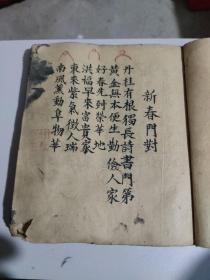 新春門對
丹桂有根獨長詩書門第
黃金無本便生勤儉人家
好春先到榮華地
洪福早來富貴家
東來紫氣徵人瑞
南風薰動阜物華